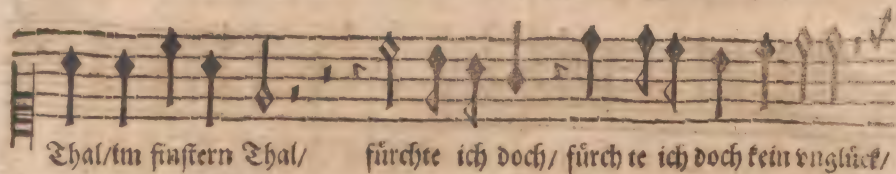 Thal/im finstern Thal/ fürchte ich doch/ fürch te ich doch kein vnglück/